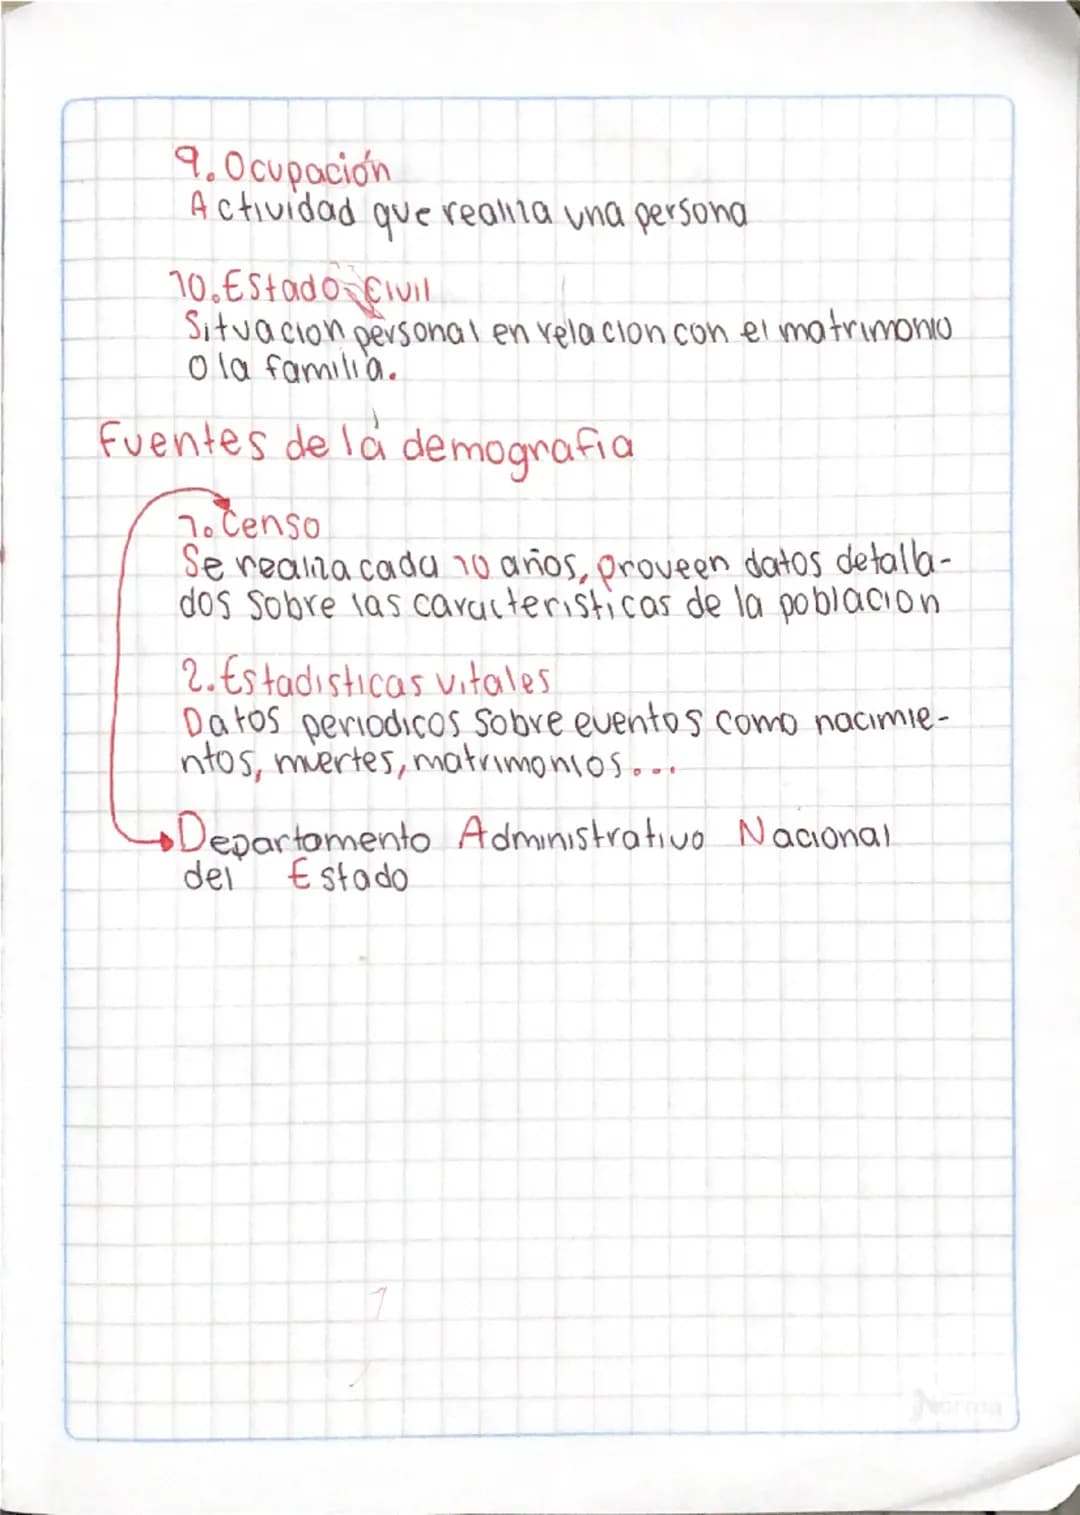 9. Ocupación
Actividad que realiza una persona
10. Estado Civil
Situacion personal en relacion con el matrimonio
o la familia.
Fuentes de la demografia
1. Censo
Se realiza cada 10 años, proveen datos detalla-
dos sobre las caracteristicas de la poblacion
2. Estadisticas vitales
Datos periodicos sobre eventos como nacimie-
ntos, muertes, matrimonios...
Departamento Administrativo Nacional
del Estado
Norma